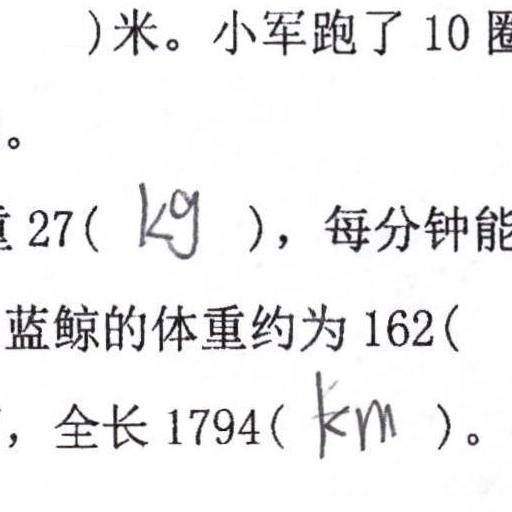 )米。小军跑了 10 圈
。
重 27( kg )，每分钟能
蓝鲸的体重约为 162(
，全长 1794( km )。